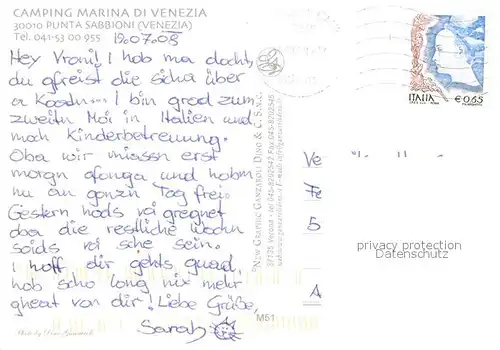 CAMPING MARINA DI VENEZIA
30010 PUNTA SABBIONI (VENEZIA)
Tel. 041-53 00 955
19.07.08
Hey Vroni! I hob ma docht,
du gfreist die sicha über
a Koatn... I bin grod zum
zweitn Moi in Italien und
moch Kinderbetreuung.
Oba wir miassn erst
morgn ofonga und hobm
nu an gonzn Tag frei.
Gestern hods vü gregnet
oba die restliche Wochn
soids vü sche sein.
I hoff, dir gehts guad,
hob scho long nix mehr
gheat von dir! Liebe Grüße,
Sarah
NEW GRAPHIC GANZAROLI DINO & C. S.N.C.
37135 Verona
M51
ITALIA
€ 0,65
Ve
Fe
5
A
privacy protection
Datenschutz